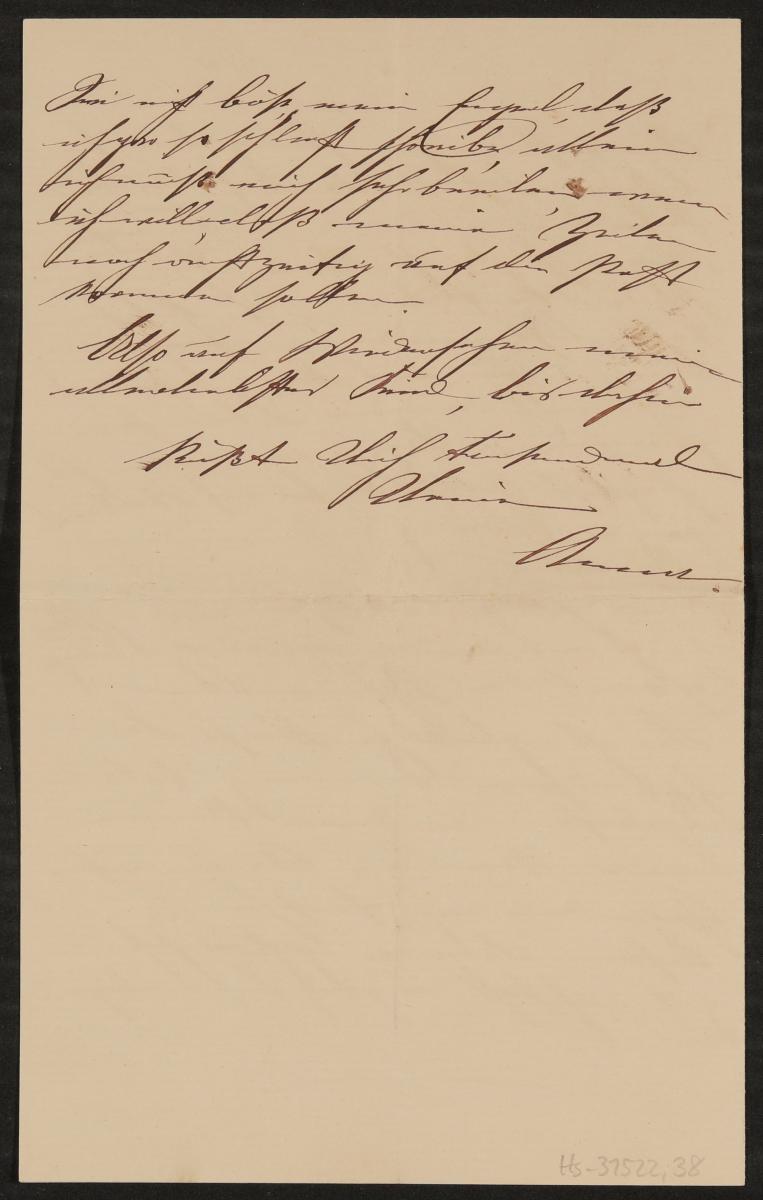 Sei nicht böse, mein Engel, daß
ich gar so schlecht schreibe, allein
ich muß mich sehr beeilen, wenn
ich will, daß meine Zeilen
noch rechtzeitig auf die Post
kommen sollen.
Also auf Wiedersehen meine
allerliebste, bis dahin
küßt Dich tausendmal
Dein
Hs-31522,38